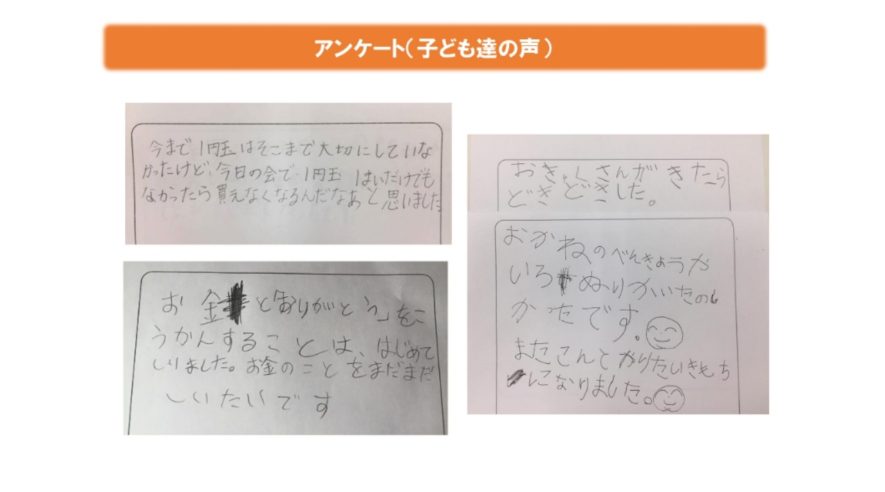 アンケート(子ども達の声)
今まで1円玉はそこまで大切にしていな
かったけど、今日の会で1円玉 1まいだけでも
なかったら買えなくなるんだなあと思いました
お金と「ありがとう」をこ
うかんすることは、はじめて
しりました。お金のことをまだまだ
しいたいです
おきゃくさんがきたら
どきどきした。
おかねのべんきょうや
いろぬりがいたのし
かたです。
またこんとかりたいきもち
になりました。